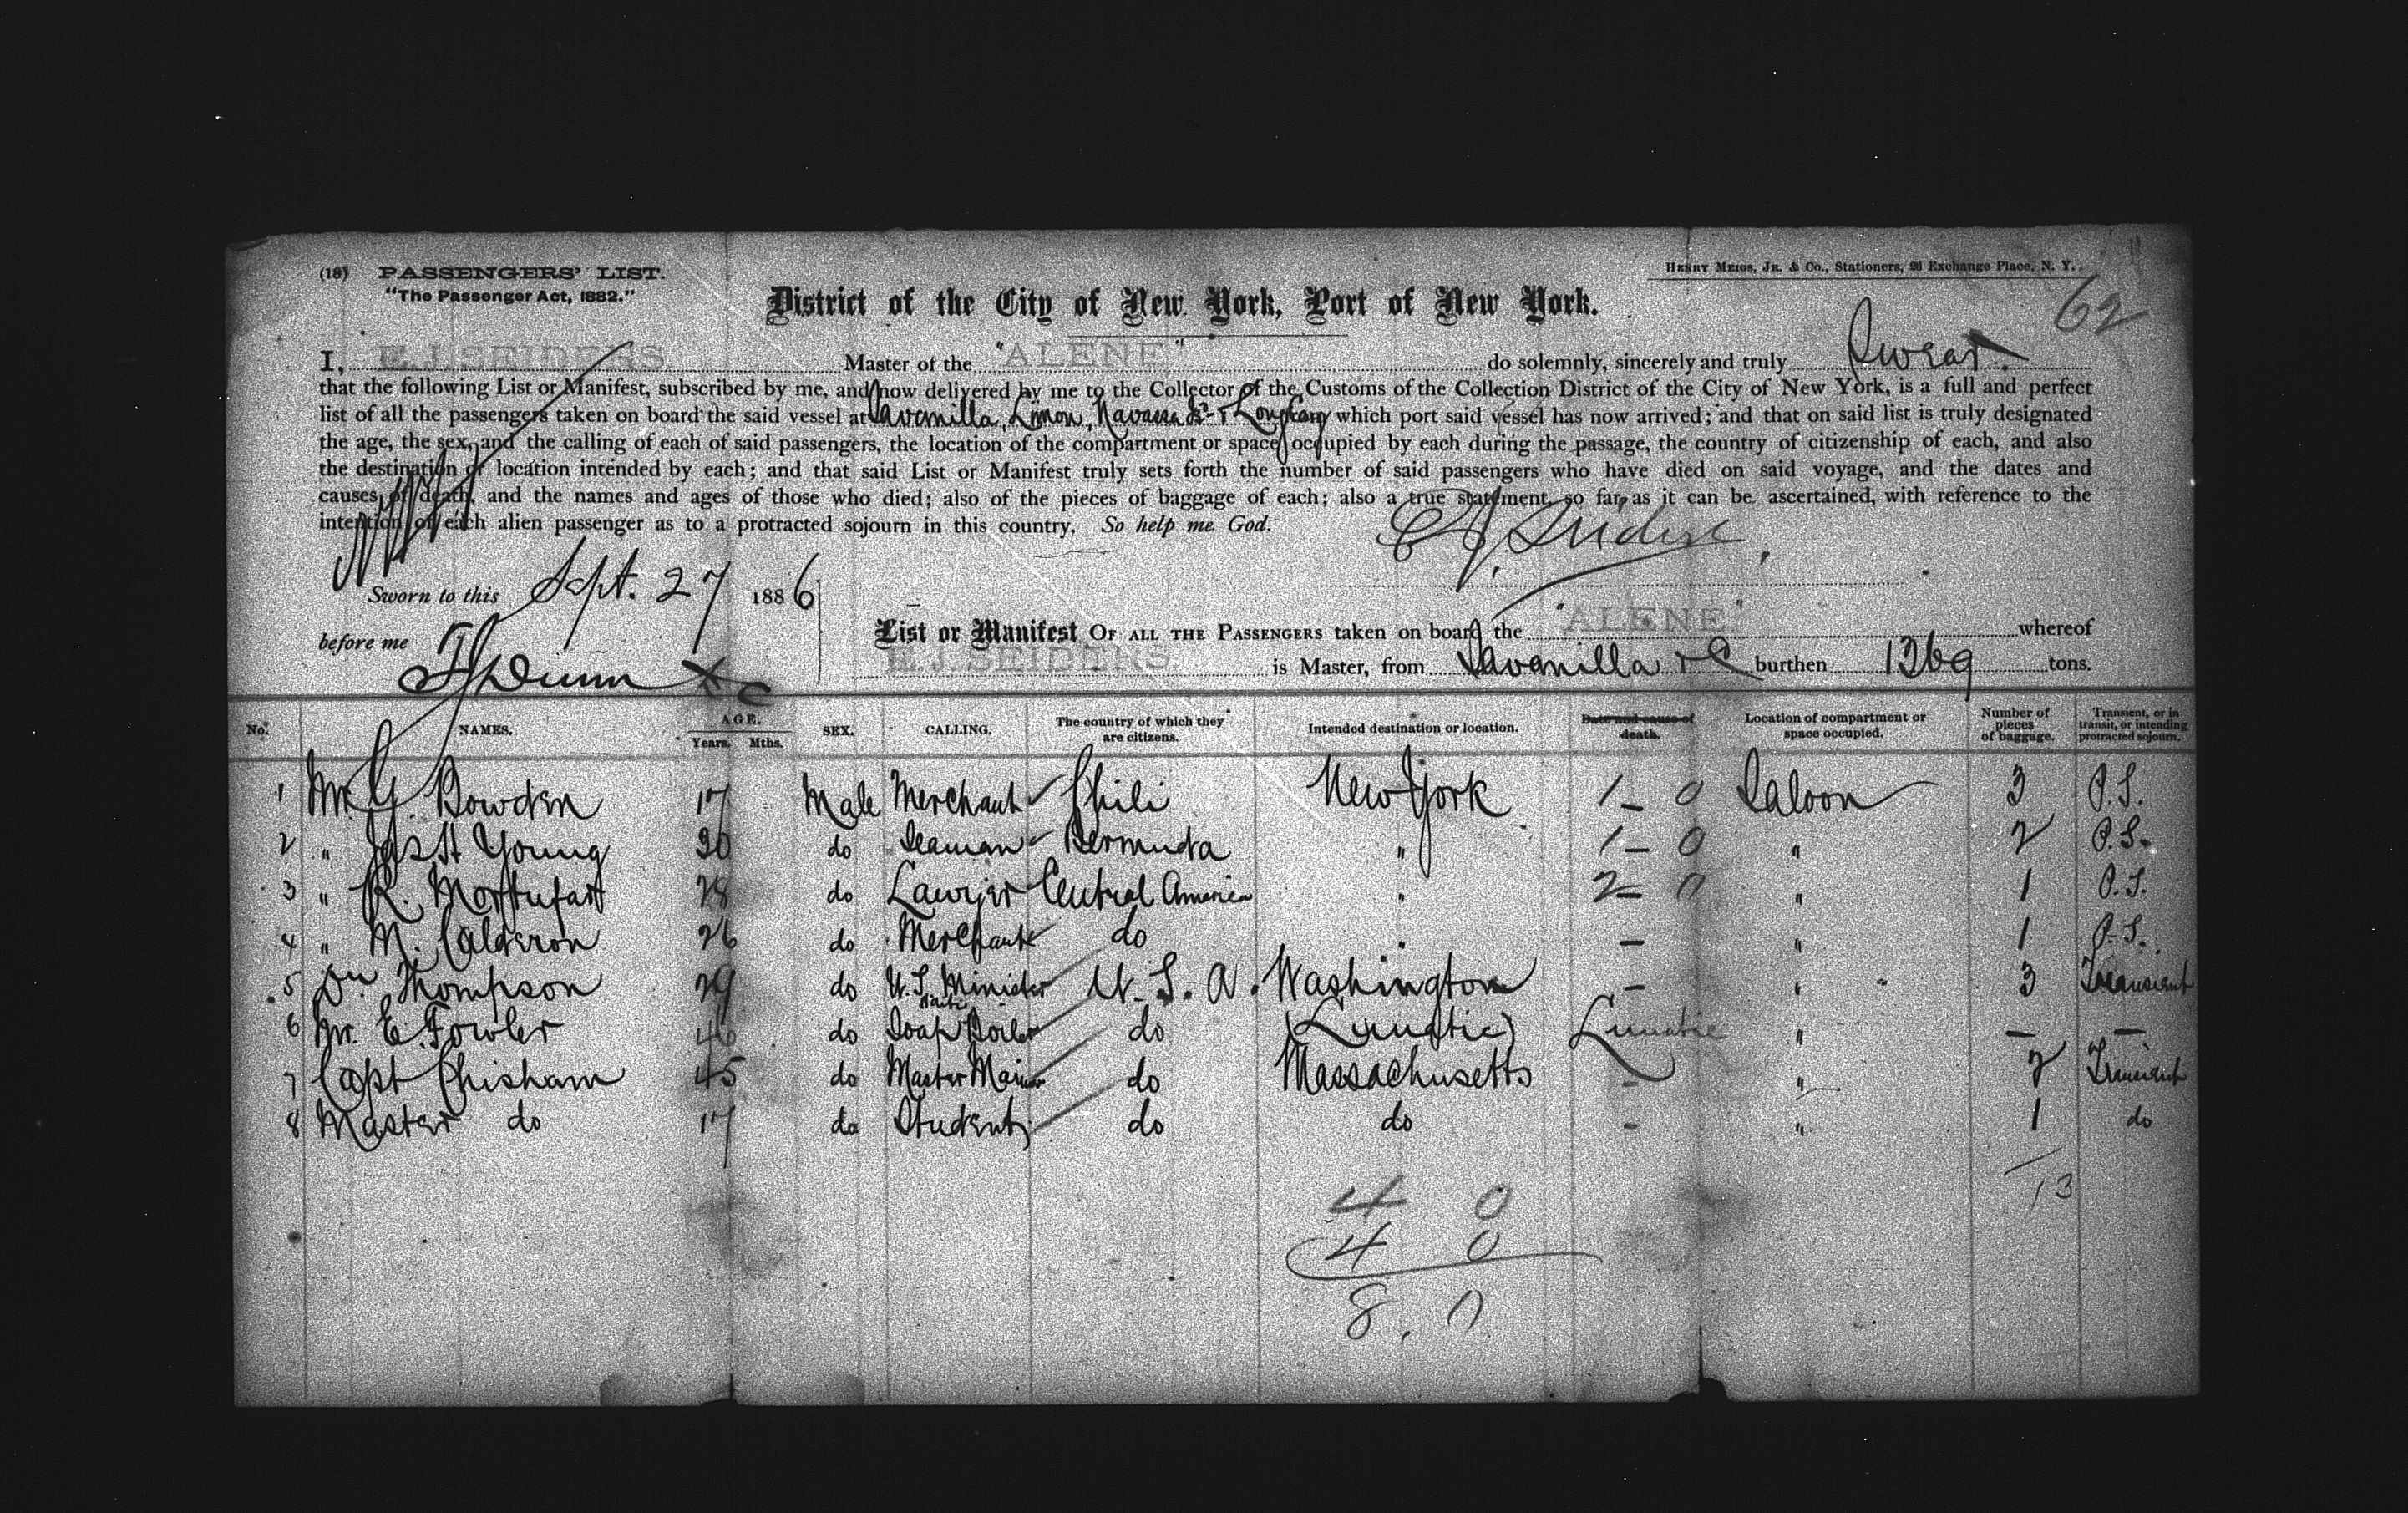 (18) PASSENGERS' LIST.
"The Passenger Act, 1882."
HENRY MEIGS, JR. & CO., Stationers, 26 Exchange Place, N. Y.
62
District of the City of New York, Port of New York.
I, E. J. SEIDERS Master of the "ALENE" do solemnly, sincerely and truly Swear
that the following List or Manifest, subscribed by me, and now delivered by me to the Collector of the Customs of the Collection District of the City of New York, is a full and perfect
list of all the passengers taken on board the said vessel at Savanilla, Limon, Navassa & from which port said vessel has now arrived; and that on said list is truly designated
the age, the sex, and the calling of each of said passengers, the location of the compartment or space occupied by each during the passage, the country of citizenship of each, and also
the destination or location intended by each; and that said List or Manifest truly sets forth the number of said passengers who have died on said voyage, and the dates and
causes of death, and the names and ages of those who died; also of the pieces of baggage of each; also a true statement, so far as it can be ascertained, with reference to the
intention of each alien passenger as to a protracted sojourn in this country. So help me God.
E J. Seiders
Sworn to this Sept. 27 1886
before me Dunn
List or Manifest OF ALL THE PASSENGERS taken on board the "ALENE" whereof
E. J. SEIDERS is Master, from Savanilla burthen 1369 tons.
No. NAMES. AGE. Years. Mths. SEX. CALLING. The country of which they are citizens. Intended destination or location. Date and cause of death. Location of compartment or space occupied. Number of pieces of baggage. Transient, or in transit, or intending protracted sojourn.
1 Mr. G. Bowden 17 Male Merchant Chili New York 1 - 0 Saloon 3 P.S.
2 " Jas H Young 30 do Seaman Bermuda " 1 - 0 " 2 P.S.
3 " R. Montufar 28 do Lawyer Central America " 2 - 0 " 1 P.S.
4 " M. Calderon 26 do Merchant do " - " 1 P.S.
5 Dr. Thompson 29 do U.S. Minister Haiti U. S. A. Washington - " 3 Transient
6 Mr. E. Fowler 46 do Soap Boiler do (Lunatic) Lunatic " - -
7 Capt Chisham 45 do Master Mariner do Massachusetts - " 2 Transient
8 Master do 17 do Student do do - " 1 do
13
4 0
4 0
8. 0